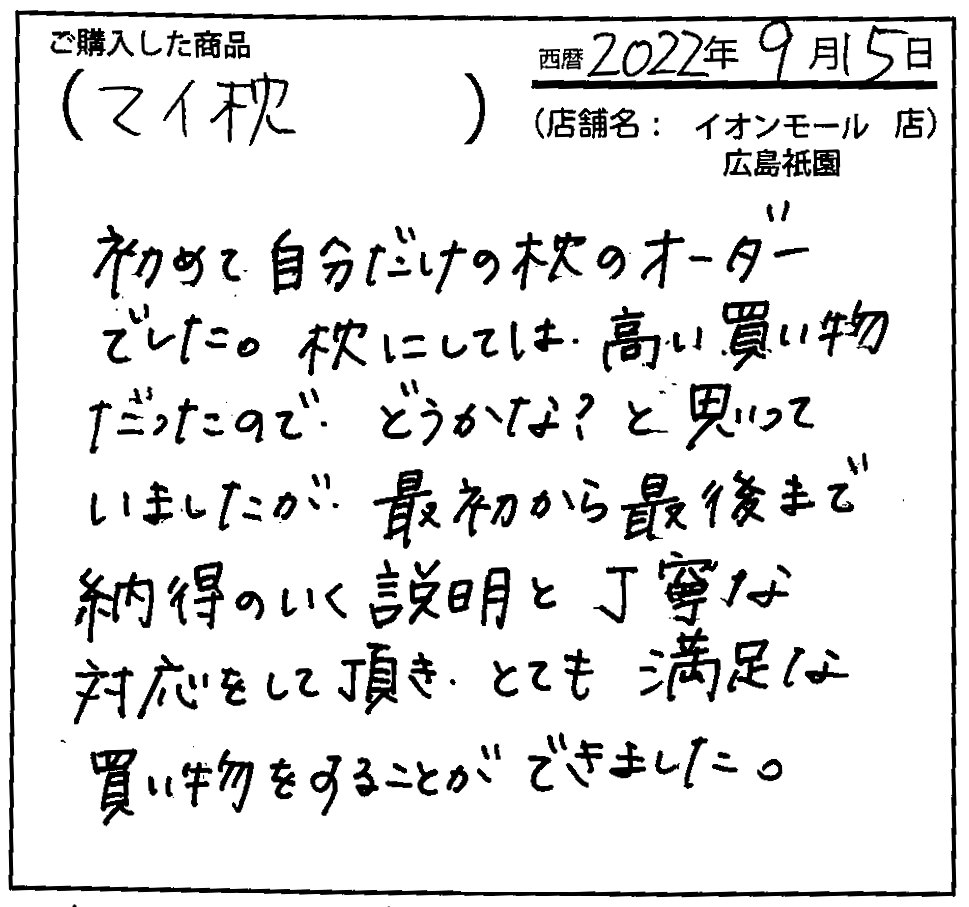 ご購入した商品
(マイ枕)
西暦2022年9月15日
(店舗名: イオンモール 店)
広島祇園
初めて自分だけの枕のオーダー
でした。枕にしては、高い買い物
だったので、どうかな?と思いって
いましたが、最初から最後まで
納得のいく説明と丁寧な
対応をして頂き、とても満足な
買い物をすることができました。